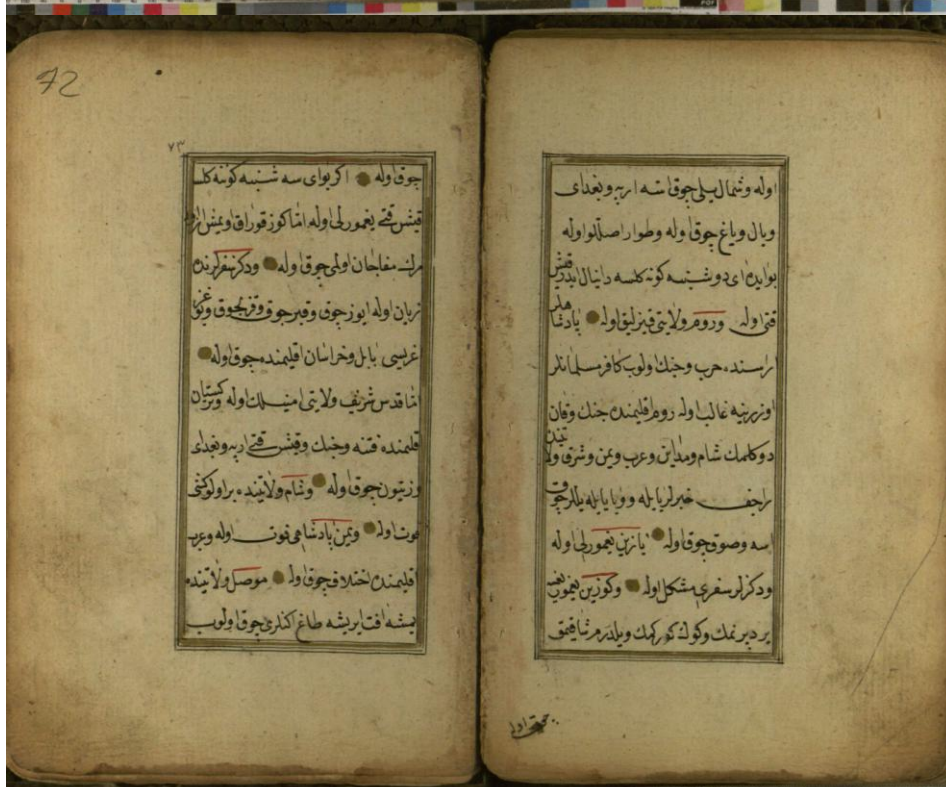 اوله وشمال یلی چوق اسه اربه وبغدای
وبال ویاغ چوق اوله وطوار اصلّلو اوله
بو ایده ای دوشنبسه کونه کلسه دانیال ایدر قیش
قتی اوله وروم ولایتی قیزلیق اوله بادشاهلر
ارسنده حرب وجنك اولوب کافر مسلمانلر
اوزرینه غالب اوله روم اقلیمنده جنك وقان
دوکلمك شام ومداین وعرب ویمن وشرق ولا تینده
راجف خبرلر یایله ووبا یایله یللر چوق
اسه وصوق چوق اوله یازین یغمورلی اوله
ودکزلر سفری مشکل اوله وکوزین یغمور یغسه
یر دپرنمك وکوك کورکمك ویلدرم شاقیمق
چوق اوله
72
۷۳
چوق اوله اکر بو ای سه شنبسه کونه کلسه
قیش قتی یغمورلی اوله امّا کوز قوراق اویمش
مرك مفاجان اولمی چوق اوله ودکز سفرلرنده
زیان اوله ایوز چوق وقبر چوق وقزلجوق
غریسی بابل وخراسان اقلیمنده چوق اوله
امّا قدس شریف ولایتی امینلك اوله وترکستان
قلیمنده فتنه وجنك وقیش قتی اربه وبغدای
وزیتون چوق اوله وشام ولاتینده بر اولو کشی
فوت اوله ویمن بادشاهی فوت اوله وعرب
اقلیمنده اختلاف چوق اوله موصل ولاتینده
یمشه افت ایریشه طاغ اکنلری چوق اولوب